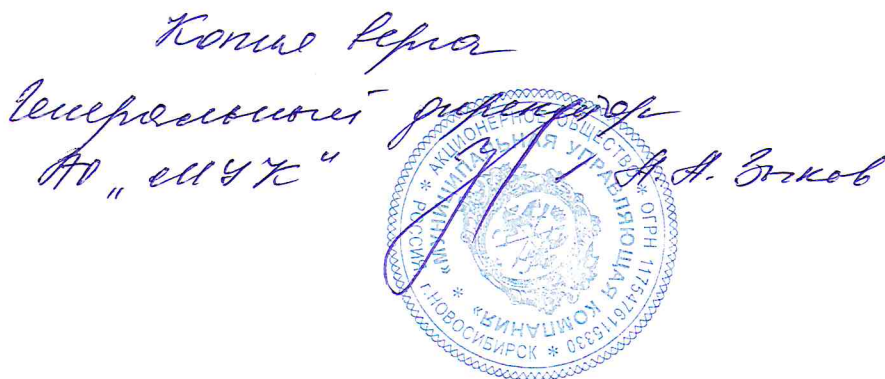 Копия верна
Генеральный директор
АО „МУК" А.А. Зыков
* АКЦИОНЕРНОЕ ОБЩЕСТВО * ОГРН 1175476115330 * г.НОВОСИБИРСК * РОССИЯ
«МУНИЦИПАЛЬНАЯ УПРАВЛЯЮЩАЯ КОМПАНИЯ» *